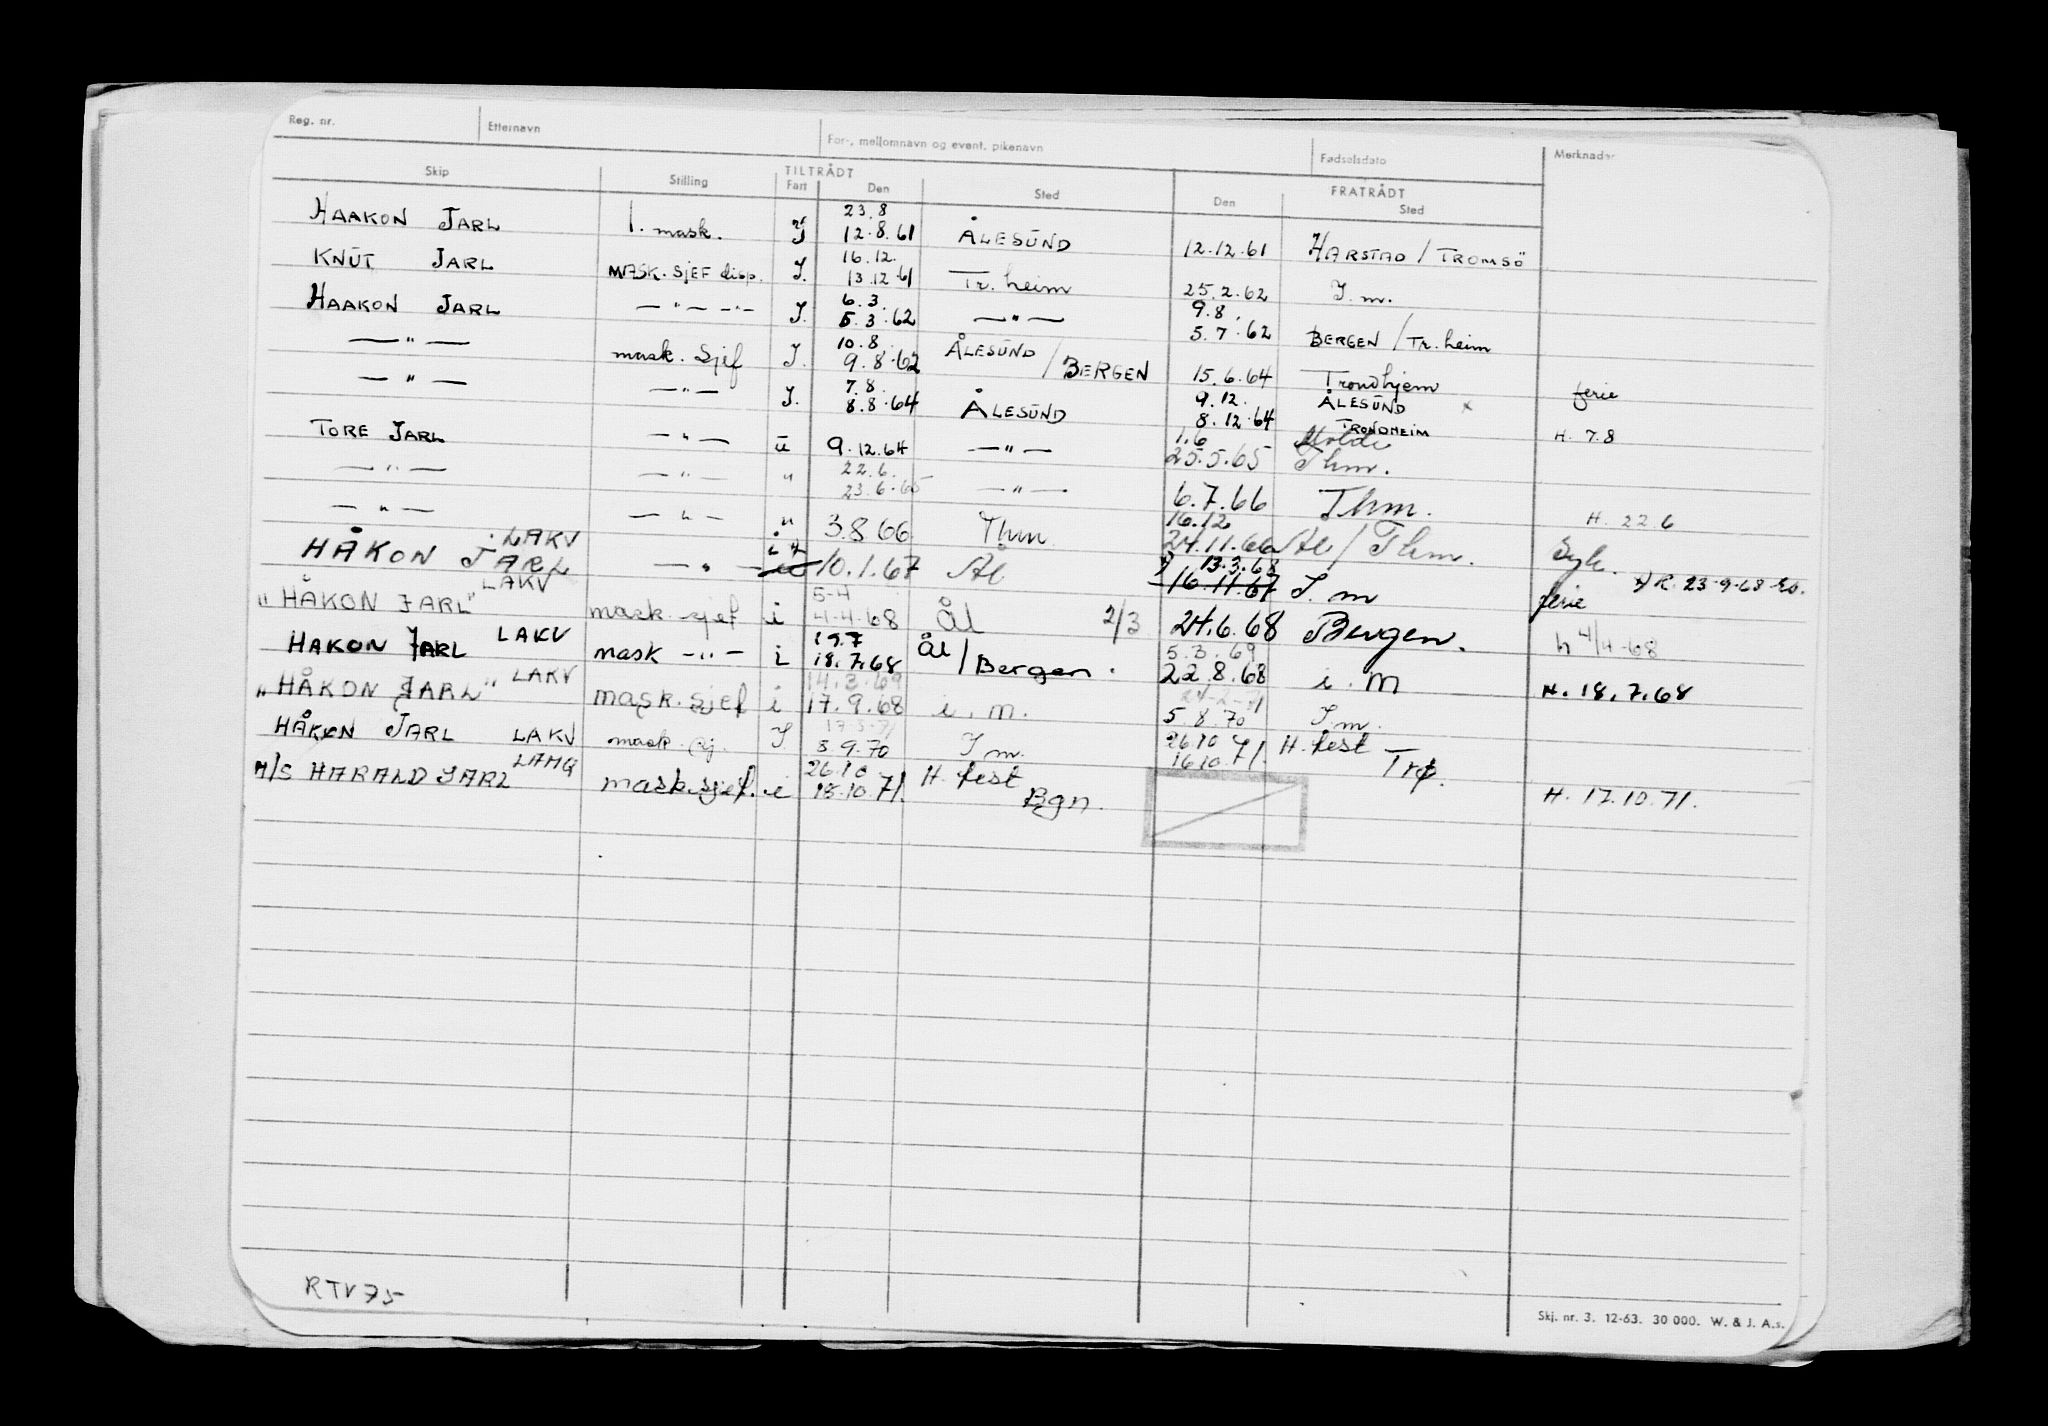 Reg. nr. Etternavn For-, mellomnavn og event. pikenavn Fødselsdato Merknader
Skip Stilling TILTRÅDT Fart Den Sted FRATRÅDT Den Sted
23.8
HAAKON JARL 1. mask. I 12.8.61 ÅLESUND 12.12.61 HARSTAD / TROMSÖ
16.12.
KNUT JARL MASK. SJEF disp. I. 13.12.61 Tr. heim 25.2.62 I. m.
6.3. 9.8.
HAAKON JARL — " — — " — I. 5.3.62 — " — 5.7.62 BERGEN / Tr. heim
10.8.
— " — mask. Sjef I. 9.8.62 ÅLESUND / BERGEN 15.6.64 Trondhjem ferie
7.8. 9.12. ÅLESUND x
— " — — " — I. 8.8.64 ÅLESUND 8.12.64 TRONDHEIM H. 7.8
1.6 Molde
TORE JARL — " — u 9.12.64 — " — 25.5.65 Thm.
22.6.
— " — — " — " 23.6.65 — " — 6.7.66 Thm. H. 22 6
16.12
— " — — " — " 3.8 66 Thm 24.11.66 Ål / Thm. Syk.
LAKV 13.3.68 x) R. 23-9-68
HÅKON JARL — " — 10.1.67 Ål x) 16.11.67 I. m ferie
LAKV 5-4
"HÅKON JARL" mask. sjef i 4-4-68 Ål 2/3 24.6.68 Bergen. h 4/4-68
LAKV 19.7 5.3.69
HAKON JARL mask — " — i 18.7.68 Ål / Bergen. 22.8.68 i. M H. 18.7.68
LAKV 14.3.69 24-2-71
"HÅKON JARL" mask. sjef i 17.9.68 i. m. 5.8.70 I. m.
17-3-71 26.10
HÅKON JARL LAKV mask. sj. I 3.9.70 I m. 16.10.71. H. fest Trø.
LAHQ 26.10
M/S HARALD JARL mask. sjef. i 18.10.71. H. fest Bgn. H. 17.10.71.
RTV75
Skj. nr. 3. 12-63. 30 000. W. & J. A.s.